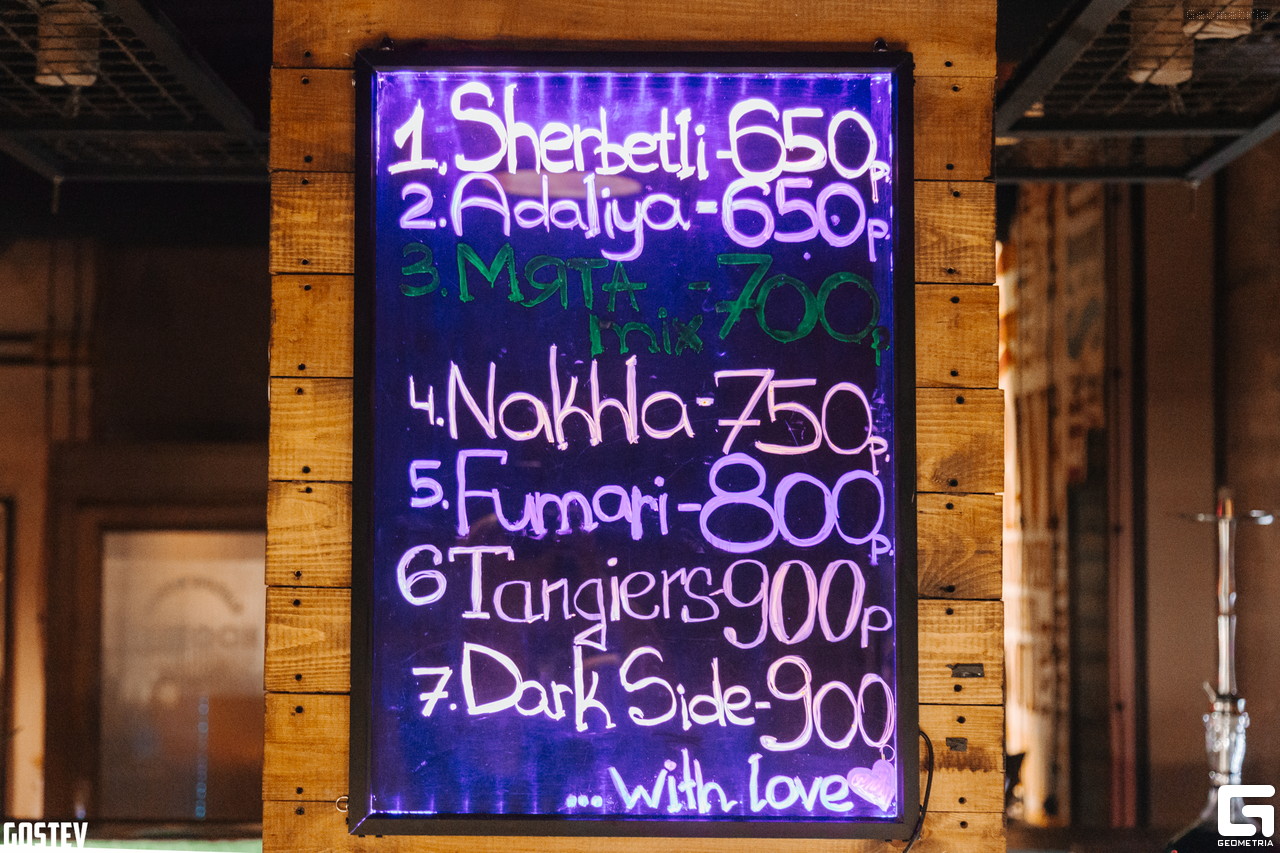 1. Sherbetli - 650р.
2. Adaliya - 650р.
3. Мята - 700р.
mix
4. Nakhla - 750р.
5. Fumari - 800р.
6 Tangiers - 900р
7. Dark Side - 900
... with love
GOSTEV
GEOMETRIA
Geometria